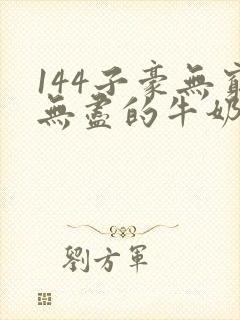 144子豪無窮
無盡的牛奶
劉方軍